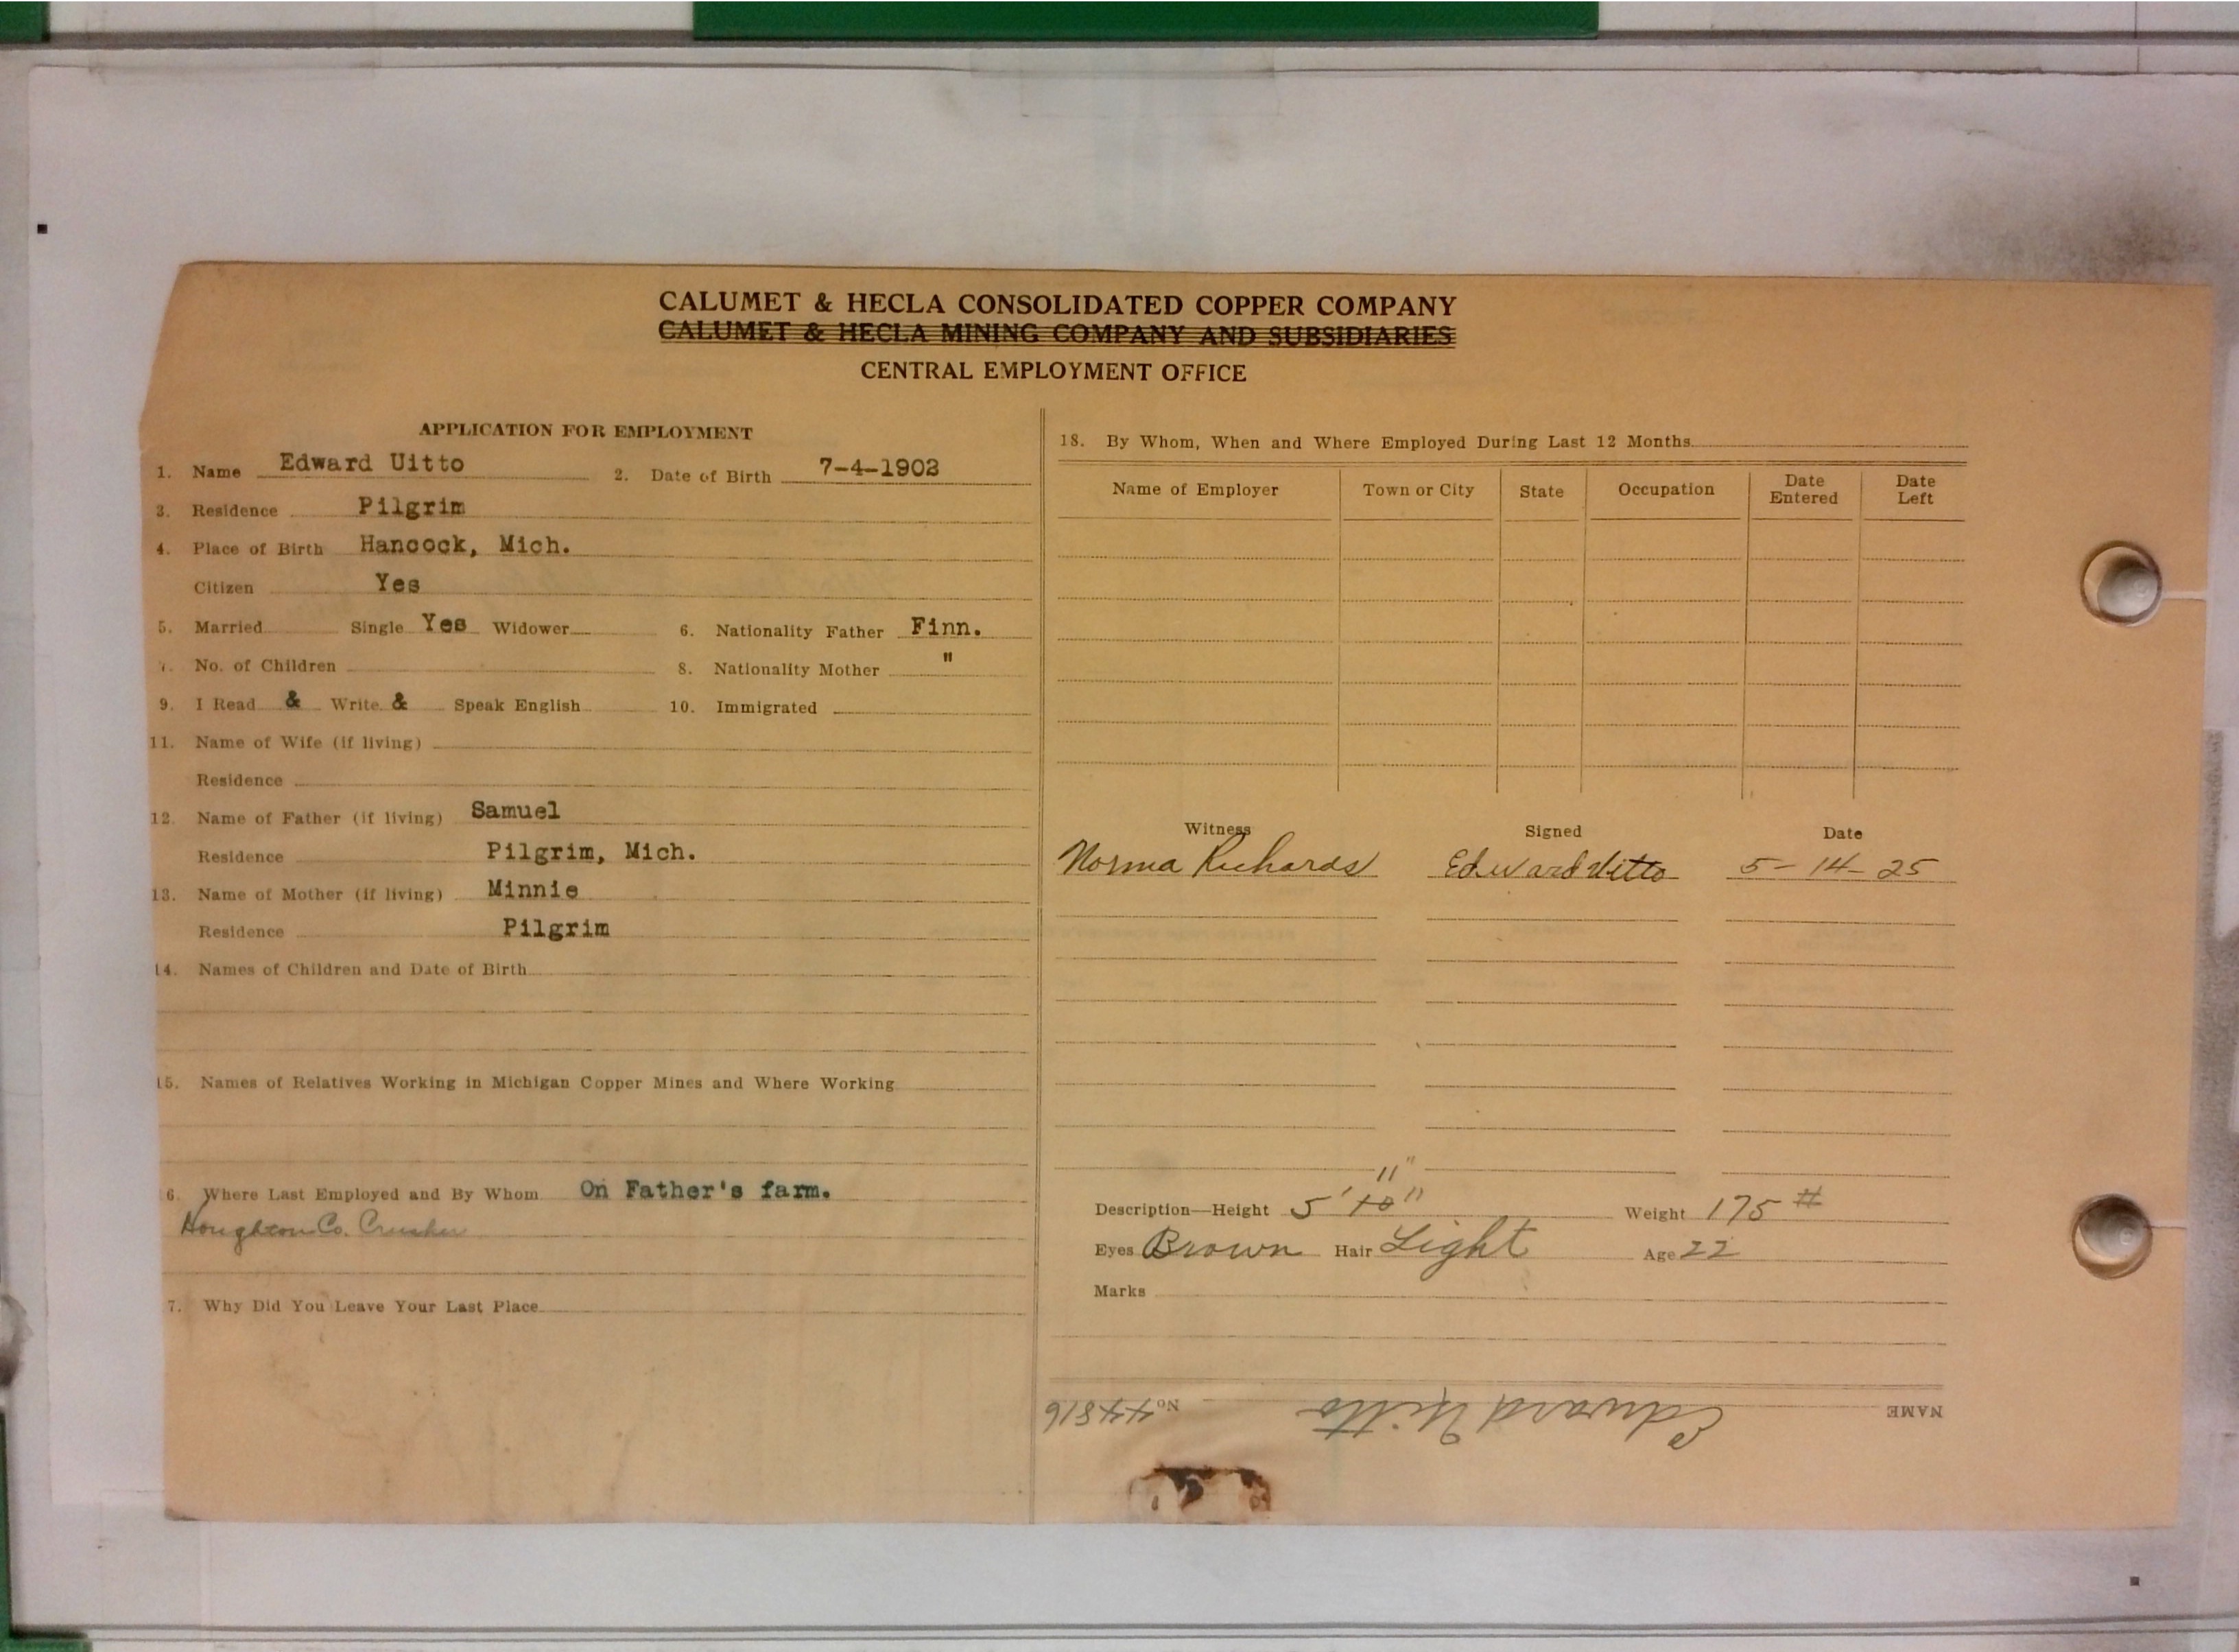 CALUMET & HECLA CONSOLIDATED COPPER COMPANY
CALUMET & HECLA MINING COMPANY AND SUBSIDIARIES
CENTRAL EMPLOYMENT OFFICE
APPLICATION FOR EMPLOYMENT
1. Name Edward Uitto 2. Date of Birth 7-4-1902
3. Residence Pilgrim
4. Place of Birth Hancock, Mich.
Citizen Yes
5. Married Single Yes Widower 6. Nationality Father Finn.
7. No. of Children 8. Nationality Mother "
9. I Read & Write & Speak English 10. Immigrated
11. Name of Wife (if living)
Residence
12. Name of Father (if living) Samuel
Residence Pilgrim, Mich.
13. Name of Mother (if living) Minnie
Residence Pilgrim
14. Names of Children and Date of Birth
15. Names of Relatives Working in Michigan Copper Mines and Where Working
6. Where Last Employed and By Whom On Father's farm.
Houghton Co. Crusher
7. Why Did You Leave Your Last Place
18. By Whom, When and Where Employed During Last 12 Months
Name of Employer Town or City State Occupation Date Entered Date Left
Witness Signed Date
Norma Richards Edward Uitto 5-14-25
11"
Description—Height 5' 10" Weight 175 #
Eyes Brown Hair Light Age 22
Marks
NAME Edward Uitto No 44816